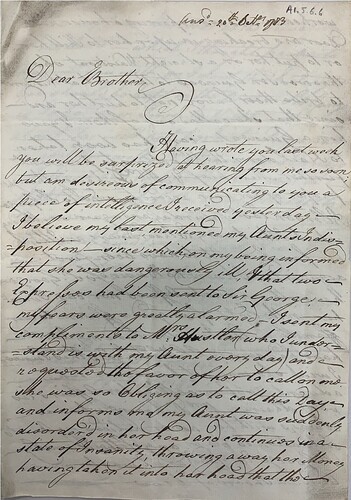 A1.5.6.6
Ansd. 20th. Octbr. 1783
Dear Brother,
Having wrote you last week
you will be surprized at hearing from me so soon
but am desirous of communicating to you a
piece of intelligence I receiv'd yesterday
I believe my last mention'd my Aunts Indis=
=position since which, on my being informed
that she was dangerously ill & that two
Expresses had been sent to Sir George,
my fears were greatly alarmed, I sent my
compliments to Mrs. Hustler who I under=
=stand is with my Aunt every day) and
requested the favor of her to call on me
she was so Obliging as to call this Day
and informs me my Aunt was suddenly
disorder'd in her head and continues in a
state of Insanity, throwing away her Money
having taken it into her head that the